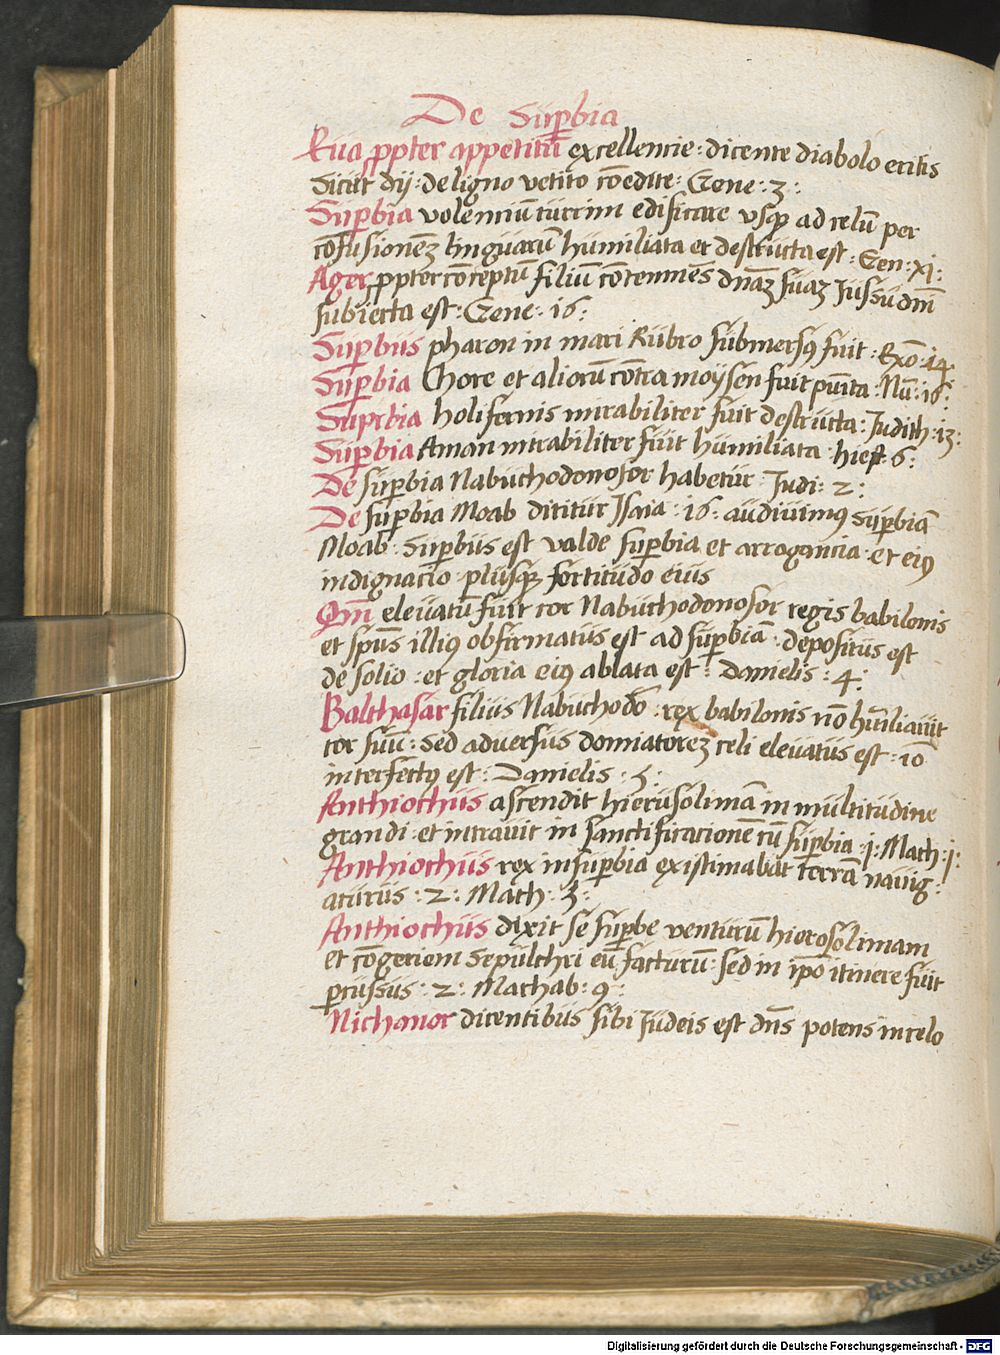 De Sup̱bia
Eua ꝓpter appetitū excellencie : dicente diabolo eritis
sicut dij : de ligno vetito cōedite : Gene : 3 :
Sup̱bia volenciū turrim edificare vsqꝫ ad celū per
cōfusionēꝫ linguarū humiliata et destructa est : Gen : xj :
Ager ꝓpter conceptū filiū cōtemnēs dnāꝫ suaꝫ Jussu dnī
subiecta est : Gene : 16 :
Sup̱bus pharon in mari Rubro submersꝰ fuit : Exō : 14
Sup̱bia Chore et aliorū cōtra moysen fuit pūita : Nū : 16 :
Suprbia holifernis mirabiliter fuit destructa : Judith : 13 :
Sup̱bia Aman mirabiliter fuit humiliata : hiest 6 :
De sup̱bia Nabuchodonosor habetur : Judi : 2 :
De sup̱bia Moab dicitur Jsaia : 16 : audiuimꝰ sup̱biā
Moab : Sup̱bus est valde sup̱bia et arrogancia et eiꝰ
indignacio plusqꝫ fortitudo eius
Qm̄ eleuatū fuit cor Nabuchodonosor regis babilonis
et spūs illiꝰ obfirmatus est ad sup̱biā : depositus est
de solio : et gloria eiꝰ ablata est : Danielis : 4 :
Balthasar filius Nabuchodō : rex babilonis nō hūiliauit
cor suū : sed aduersus domiatoreꝫ celi eleuatus est : iō
interfectꝰ est : Danielis : 5 :
Anthiochus ascendit hierusolimā in multitudine
grandi : et intrauit in sanctificacionē cū sup̱bia : j : Mach : j :
Anthiochus rex in sup̱bia existimabat terrā nauig :
aturus : 2 : Mach : 5 :
Anthiochus dixit se sup̱be venturū hierosolimam
et cōgeriem sepulchri eū facturū : sed in ip̄o itinere fuit
p̱cussus : 2 : Machab : 9 :
Nichanor dicentibus sibi Judeis est dn̄s potens in celo
Digitalisierung gefördert durch die Deutsche Forschungsgemeinschaft - DFG